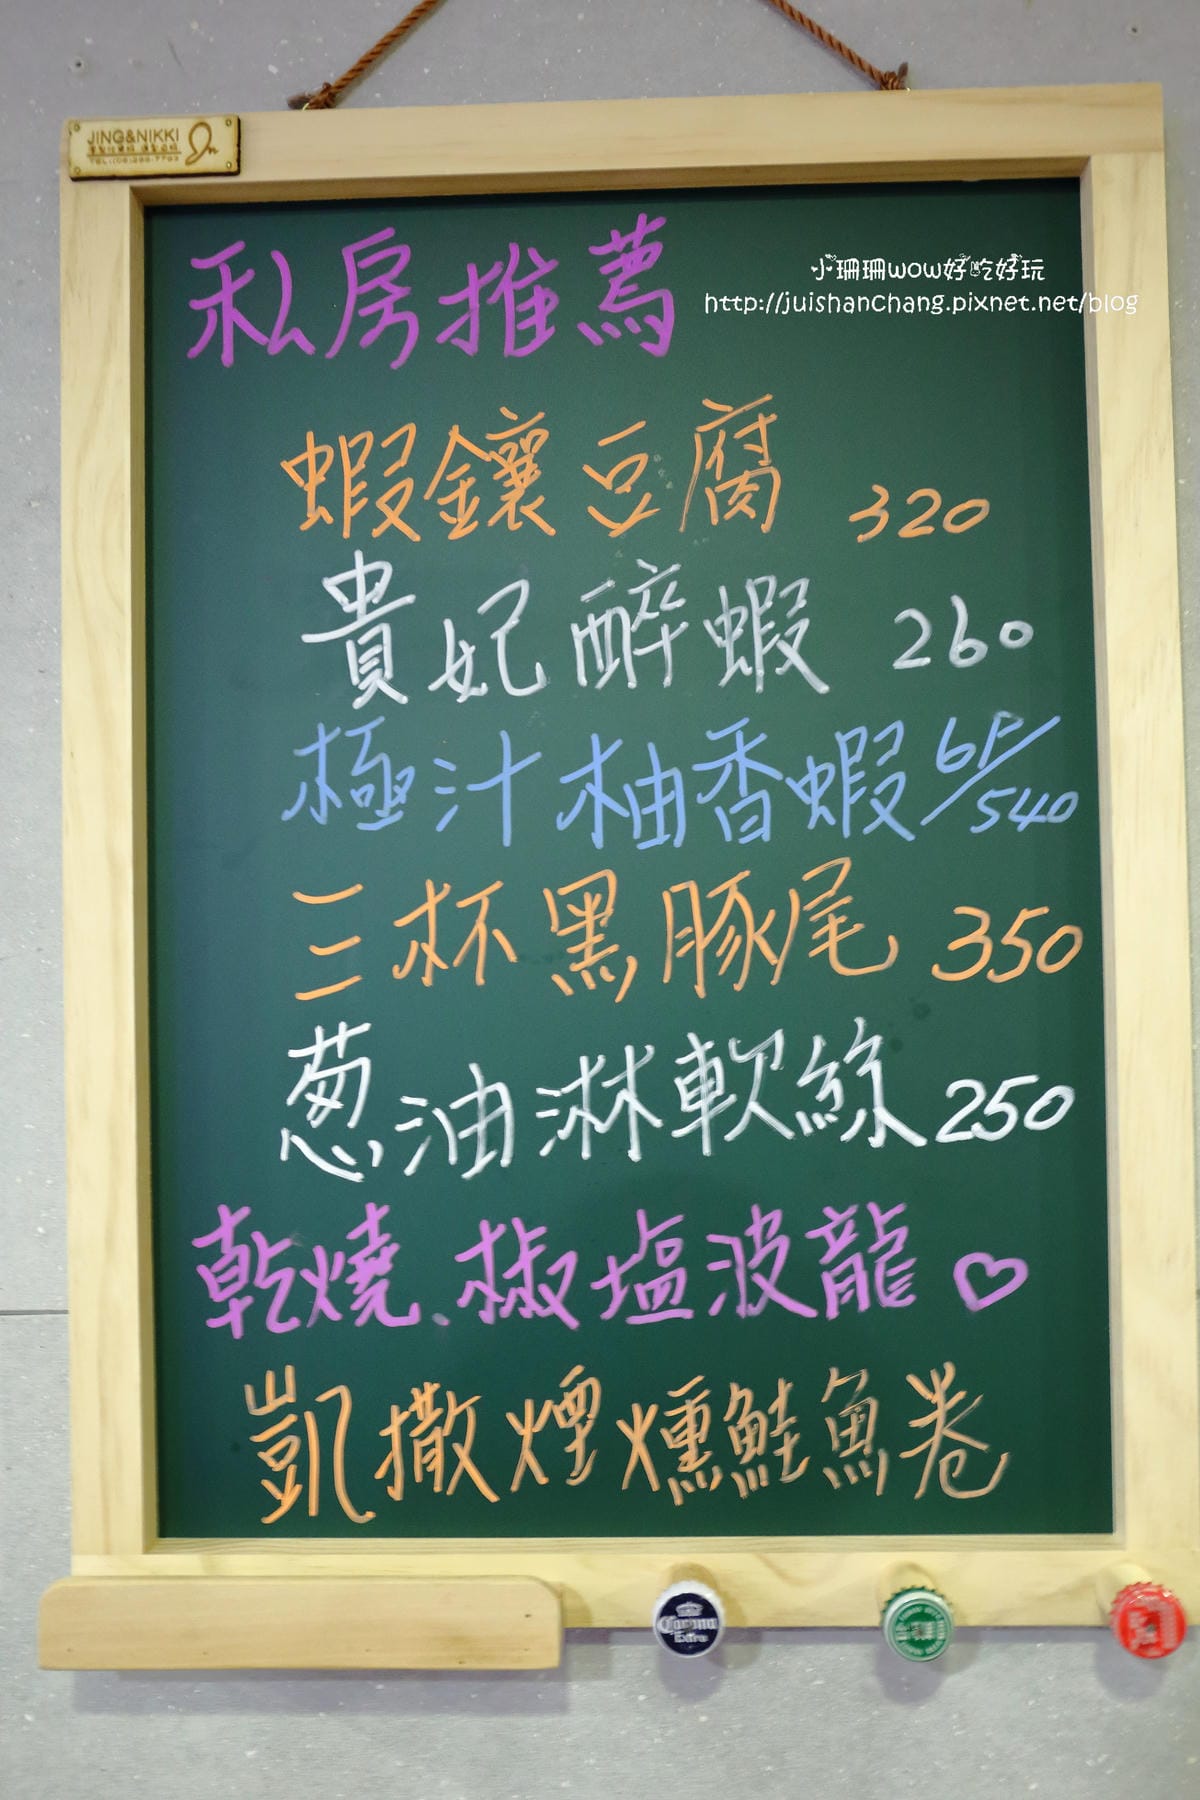 JING&NIKKI
私房推薦
小珊珊wow好吃好玩
http://juishanchang.pixnet.net/blog
蝦鑲豆腐 320
貴妃醉蝦 260
極汁柚香蝦 6P/540
三杯黑豚尾 350
葱油淋軟絲 250
乾燒、椒塩波龍♡
凱撒煙燻鮭魚卷
Corona
Extra